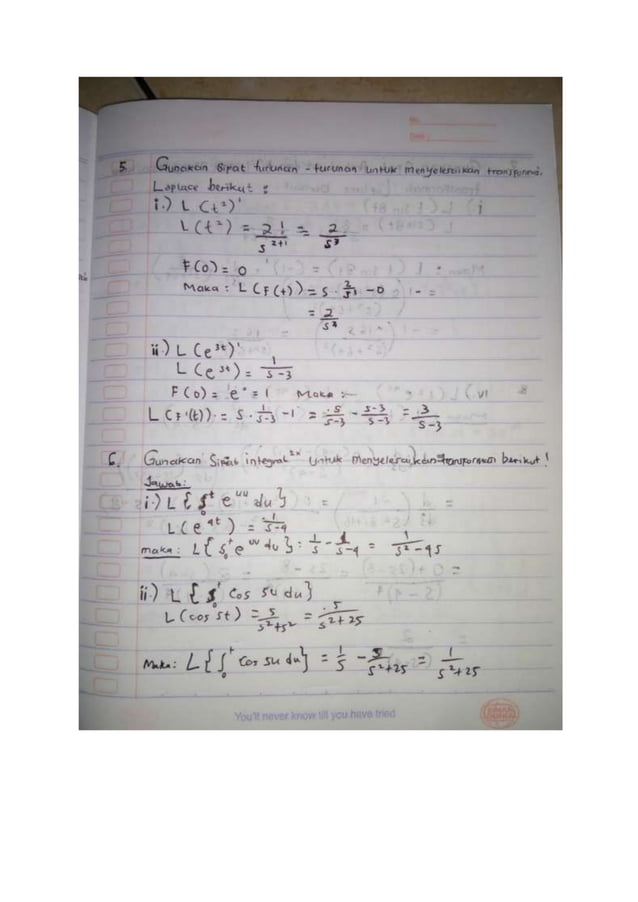 No.
Date:
5. Gunakan Sifat turunan - turunan untuk menyelesaikan transformasi
Laplace berikut :
i.) L (t²)'
L (t²) = 2! / s^(2+1) = 2 / s³
F(0) = 0
Maka : L (F(t)) = s · 2/s³ - 0
= 2/s²
ii.) L (e^3t)'
L (e^3t) = 1 / s-3
F(0) = e° = 1 Maka :
L (F'(t)) = s · 1/s-3 - 1 = s/s-3 - s-3/s-3 = 3/s-3
6. Gunakan Sifat integral untuk menyelesaikan transformasi berikut !
Jawab:
i.) L { ∫₀ᵗ e^4u du }
L (e^4t) = 1/s-4
maka : L { ∫₀ᵗ e^4u du } = 1/s - 1/s-4 = 1 / s²-4s
ii.) L { ∫₀ᵗ cos 5u du }
L (cos 5t) = s / s²+5² = s / s²+25
Maka : L { ∫₀ᵗ cos 5u du } = 1/s - s / s²+25 = 1 / s²+25
You'll never know till you have tried